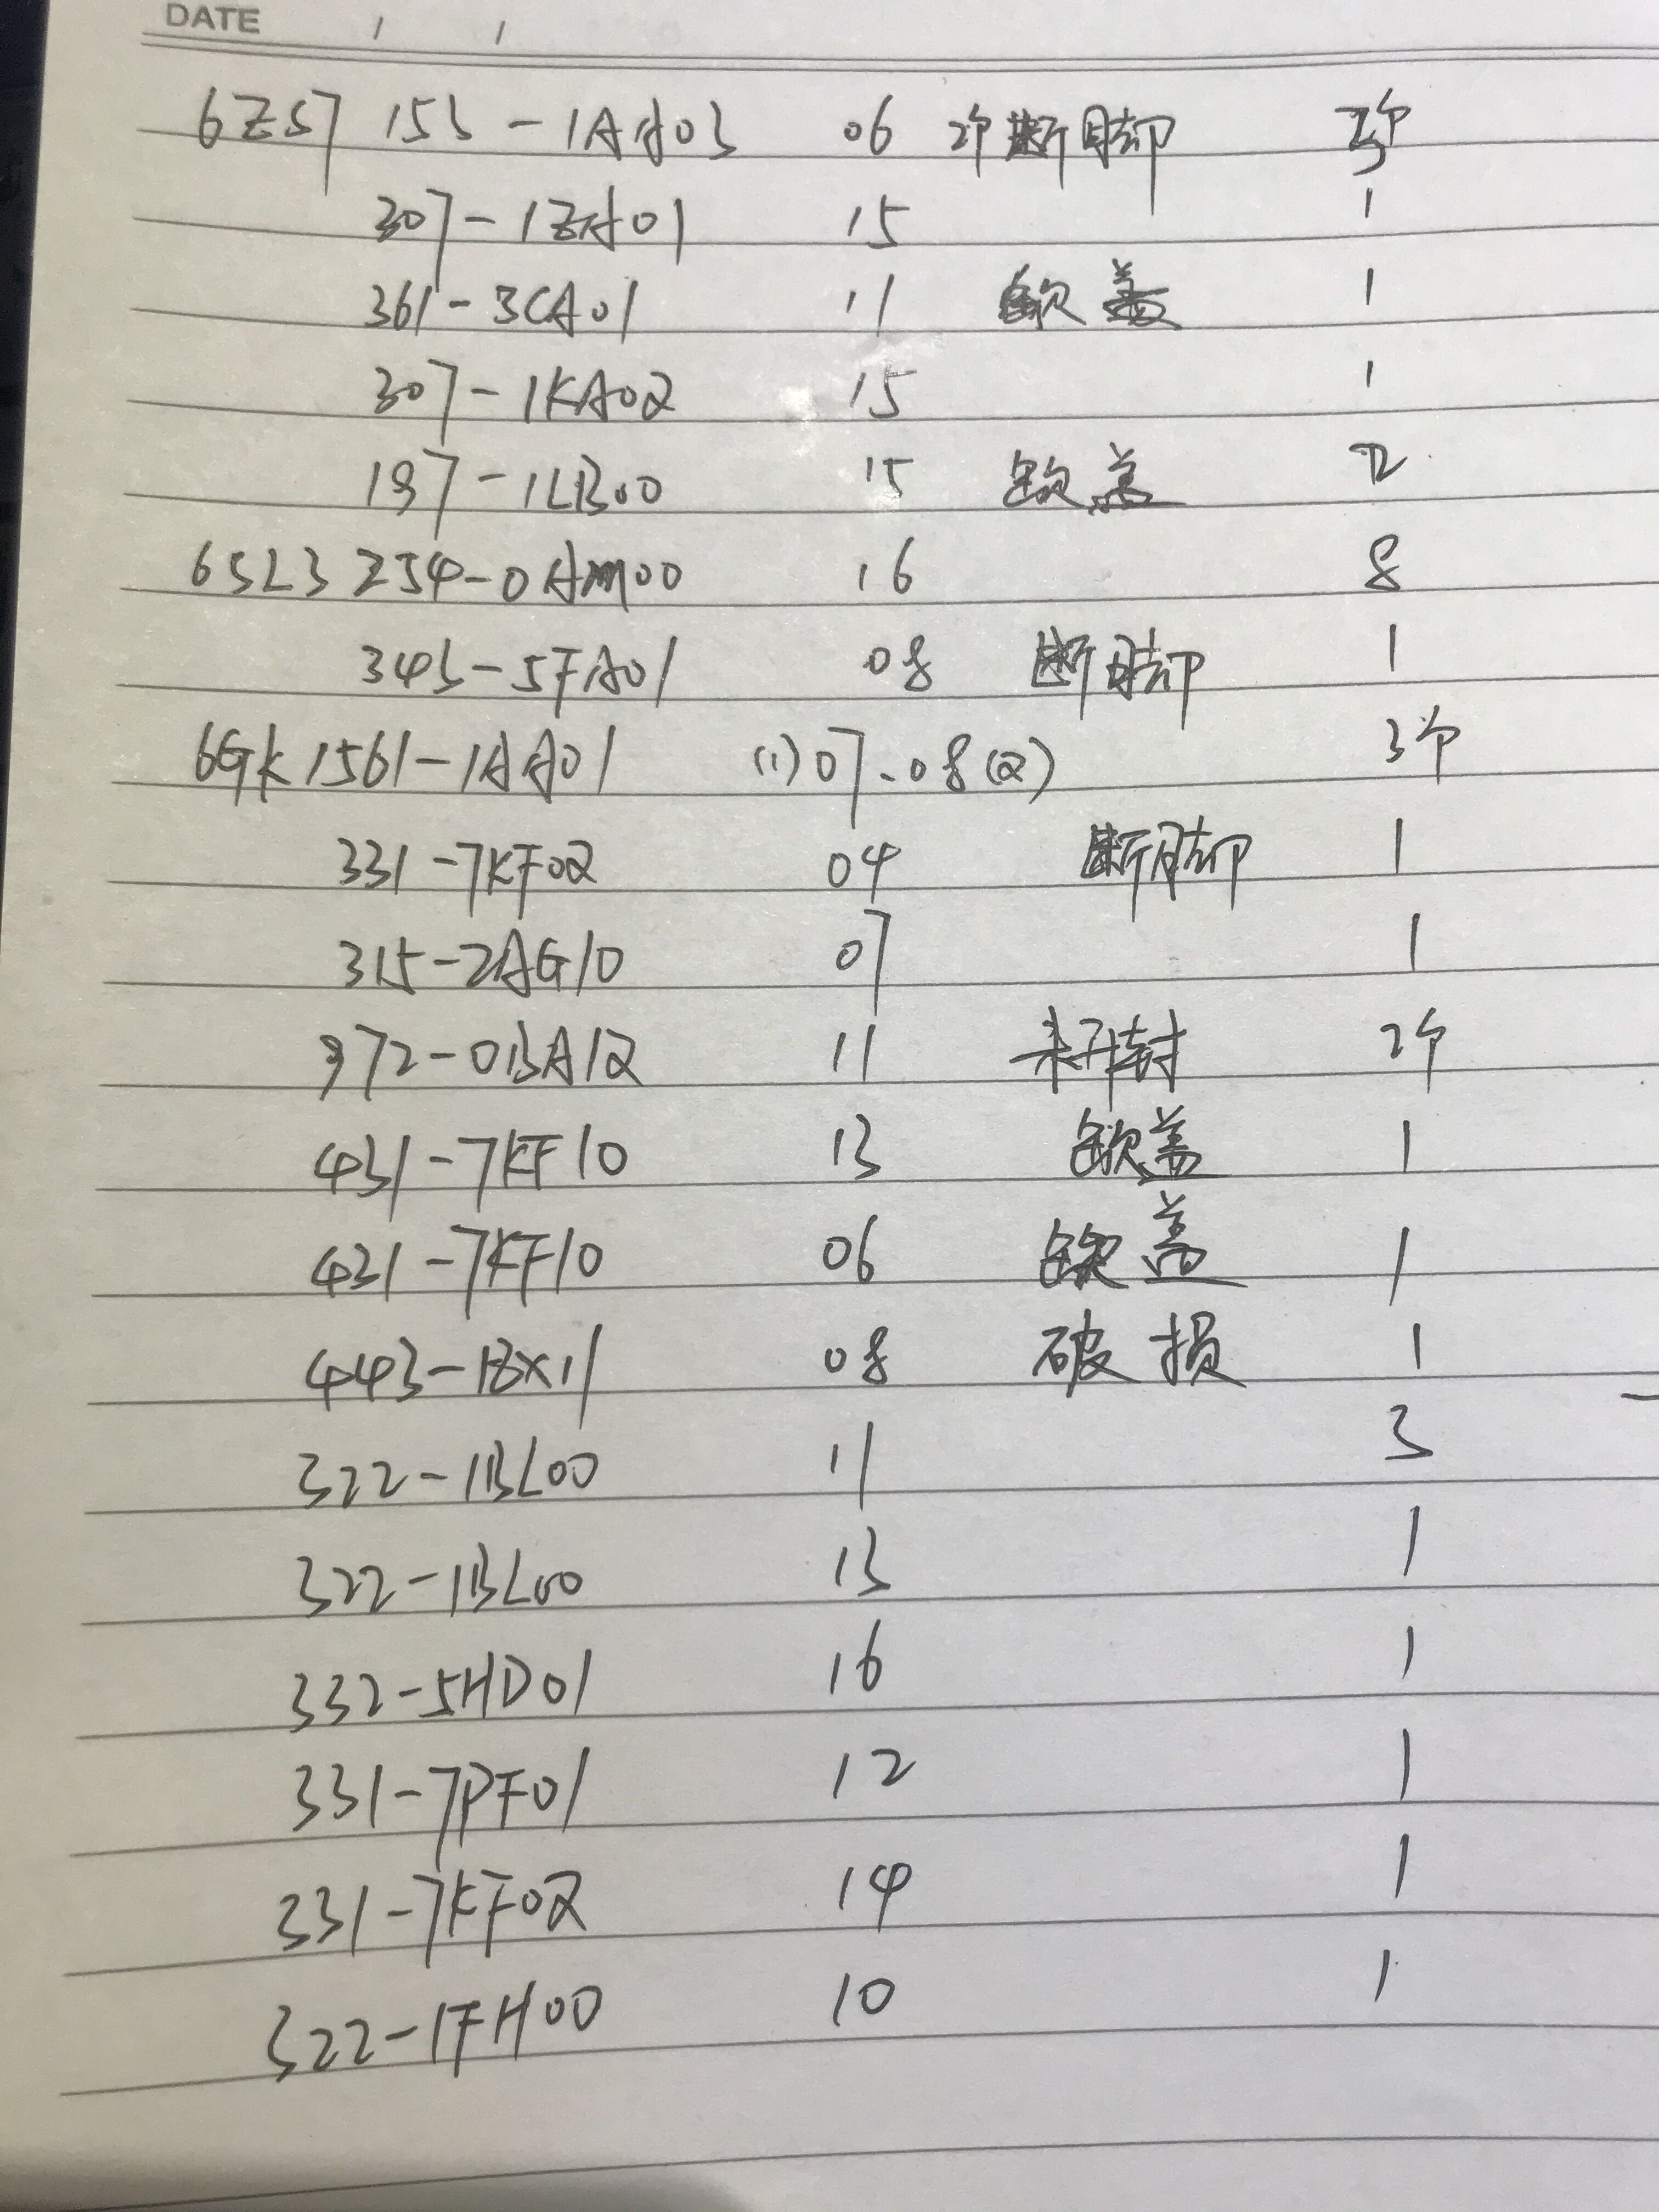 DATE / /
6ES7 153-1AA03 06 2个断脚 3个
307-1EA01 15 1
361-3CA01 11 缺盖 1
307-1KA02 15 1
197-1LB00 15 缺盖 2
6SL3 254-0AM00 16 8
343-5FA01 08 断脚 1
6GK1561-1AA01 (1)07-08(2) 3个
331-7KF02 04 断脚 1
315-2AG10 07 1
972-0BA12 11 未开封 2个
431-7KF10 13 缺盖 1
431-7KF10 06 缺盖 1
443-1BX11 08 破损 1
322-1BL00 11 3
322-1BL00 13 1
332-5HD01 16 1
331-7PF01 12 1
331-7KF02 14 1
322-1FH00 10 1